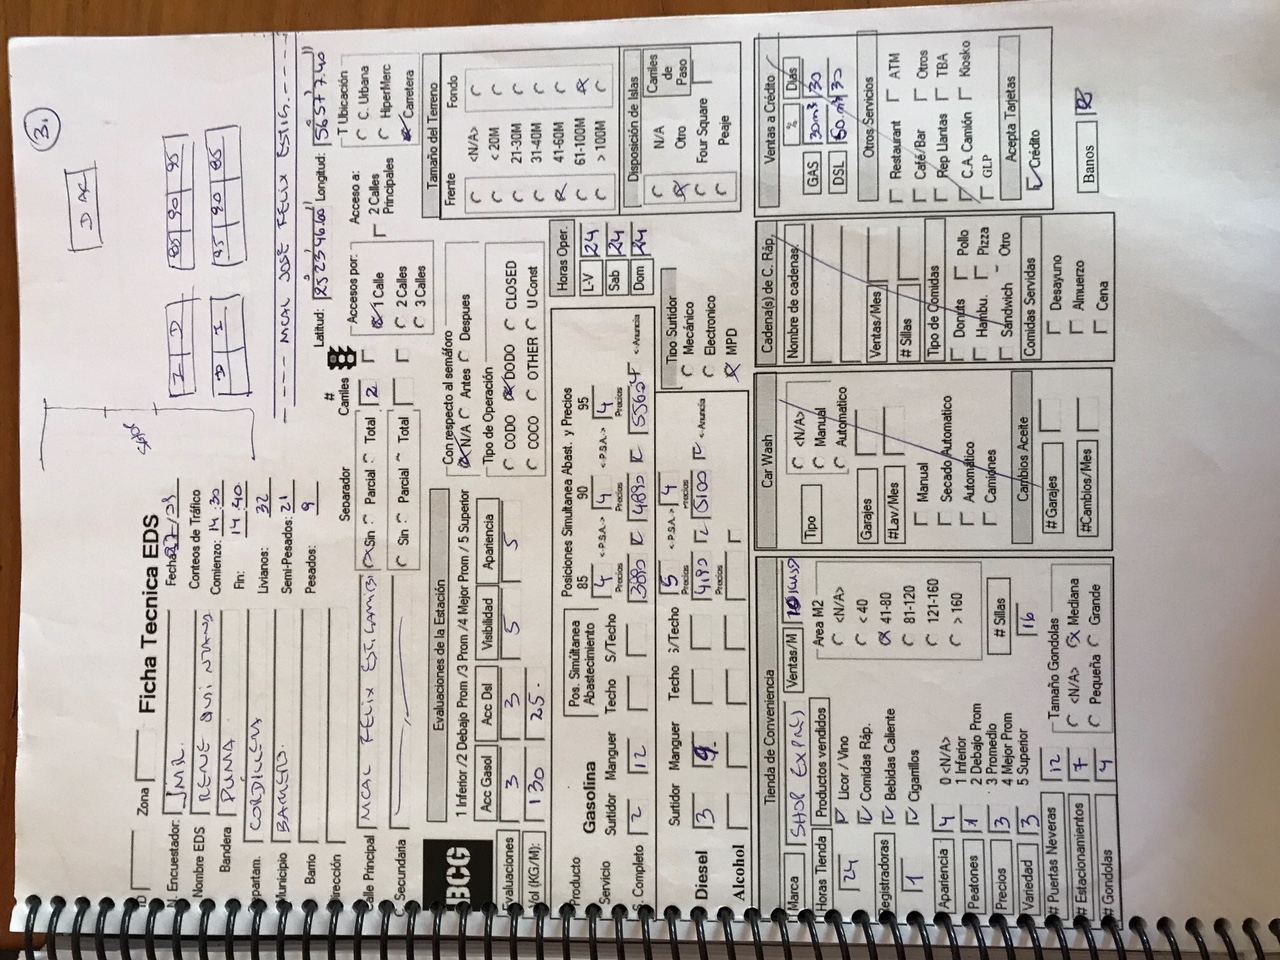 3.
D A C
I D 85 90 95
D I 95 90 85
ID Zona Ficha Tecnica EDS
N. Encuestador: JMR. Fecha
Nombre EDS RENE Conteos de Tráfico
Bandera PUMA Comienzo: 14:30
Fin: 14:40
Departam. CORDILLERA Livianos: 32
Municipio Semi-Pesados: 21
Barrio Pesados: 9
---- MCAL JOSE FELIX ESTIG. ----
Latitud: 25°23'46.60" Longitud: 56°57'7.40"
Dirección Separador # Carriles Accesos por: Acceso a: T Ubicación
Calle Principal MCAL FELIX Sin Parcial Total 2 1 Calle 2 Calles Principales C. Urbana
C Secundaria Sin Parcial Total 2 Calles HiperMerc
3 Calles Carretera
BCG
Evaluaciones de la Estación
1 Inferior /2 Debajo Prom /3 Prom /4 Mejor Prom / 5 Superior
Acc Gasol Acc Dsl Visibilidad Apariencia
Evaluaciones 3 3 5 5
Vol (KG/M): 130 25.
Con respecto al semáforo
N/A Antes Despues
Tipo de Operación
CODO DODO CLOSED
COCO OTHER U Const
Tamaño del Terreno
Frente Fondo
<N/A>
< 20M
21-30M
31-40M
41-60M
61-100M
> 100M
Producto Gasolina Pos. Simúltanea Abastecimiento Posiciones Simultanea Abast. y Precios
85 90 95
Servicio Surtidor Manguer Techo S/Techo 4 <-P.S.A.-> 4 <-P.S.A.-> 4
Precios Precios Precios
S. Completo 2 12 4890 <-Anuncia
Diesel Surtidor Manguer Techo S/Techo 5 <-P.S.A.-> 4
Precios Precios
3 9. 4190 5100 <-Anuncia
Alcohol
Horas Oper.
L-V 24
Sab 24
Dom 24
Tipo Surtidor
Mecánico
Electronico
MPD
Disposición de Islas
N/A
Otro
Four Square
Peaje
Carriles de Paso
Tienda de Conveniencia
Marca SHOP EXPRES Ventas/M
Horas Tienda Productos vendidos Area M2
24 Licor / Vino <N/A>
Comidas Ráp. < 40
Registradoras Bebidas Caliente 41-80
1 Cigarillos 81-120
121-160
> 160
Apariencia 4 0 <N/A>
1 Inferior
Peatones 2 Debajo Prom
Precios 3 3 Promedio
4 Mejor Prom
Variedad 3 5 Superior
# Sillas
16
# Puertas Neveras 12 Tamaño Gondolas
# Estacionamientos 7 <N/A> Mediana
# Gondolas 4 Pequeña Grande
Car Wash
Tipo <N/A>
Manual
Automatico
Garajes
#Lav/Mes
Manual
Secado Automatico
Automático
Camiones
Cambios Aceite
# Garajes
#Cambios/Mes
Cadena(s) de C. Ráp.
Nombre de cadenas
Ventas/Mes
# Sillas
Tipo de Comidas
Donuts Pollo
Hambu. Pizza
Sandwich Otro
Comidas Servidas
Desayuno
Almuerzo
Cena
Ventas a Crédito
% Dias
GAS 30m3/30
DSL 60m3/30
Otros Servicios
Restaurant ATM
Café/Bar Otros
Rep Llantas TBA
C.A. Camión Kiosko
GLP
Acepta Tarjetas
Crédito
Banos